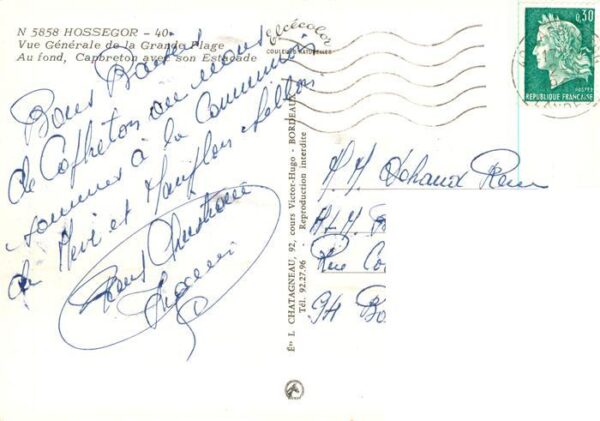 N 5858 HOSSEGOR - 40
Vue Générale de la Grande Plage
Au fond, Capbreton avec son Estacade
elcécolor
COULEURS NATURELLES
0,30
POSTES
REPUBLIQUE FRANÇAISE
Bons Baisers
de Capbreton où nous
sommes à la Communion
de et
René Christiane
Éᵗˢ L. CHATAGNEAU, 92, cours Victor-Hugo - BORDEAUX
Tél. 92.27.96 - Reproduction interdite
M. M. René
H L M
Rue Co
94 Bo